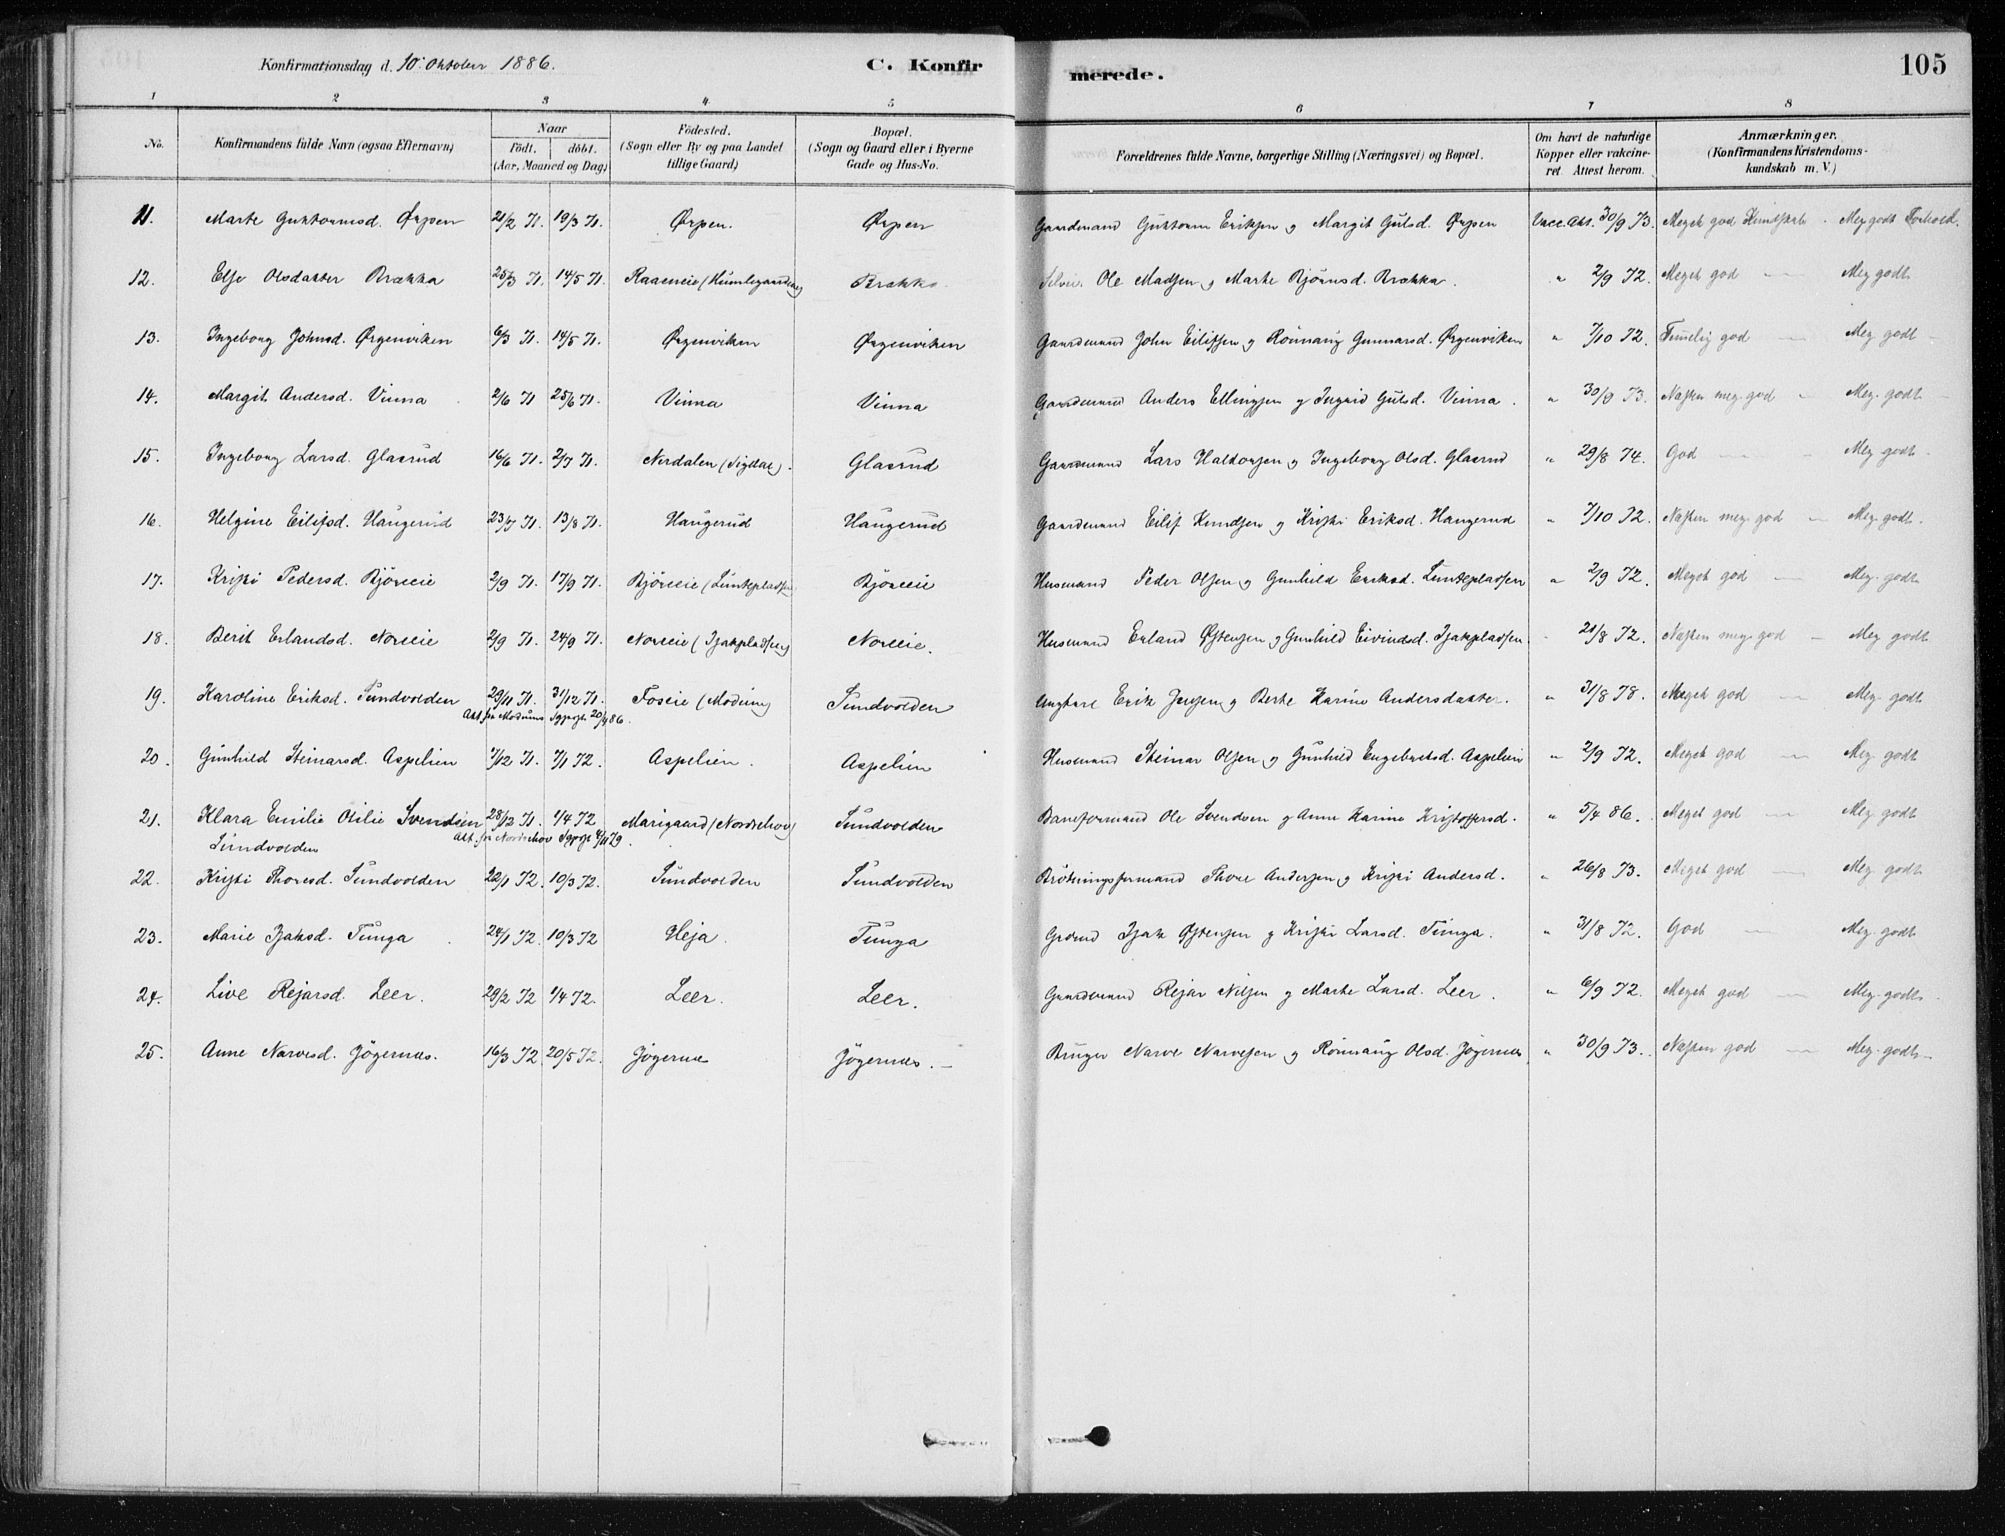 Konfirmationsdag d. 10. Oktober 1886. C. Konfirmerede. 105
1 2 3 4. 5 6 7 8
No. Konfirmandens fulde Navn (ogsaa Efternavn) Naar Födt. döbt. (Aar, Maaned og Dag) Födested. (Sogn eller By og paa Landet tillige Gaard) Bopæl. (Sogn og Gaard eller i Byerne Gade og Hus-No. Forældrenes fulde Navne, borgerlige Stilling (Næringsvei) og Bopæl. Om havt de naturlige Kopper eller vakcineret. Attest herom. Anmærkninger. (Konfirmandens Kristendomskundskab m. V.)
11. Marte Guttormsd. Ørpen 21/2 71. 19/3 71. Ørpen. Ørpen Gaardmand Guttorm Eriksen og Margit Gulsd. Ørpen Vacc. Att. 30/9 73. Meget god Kundskab - Meg godt Forhold.
12. Else Olsdatter Brækka 25/3 71. 14/5 71. Raaeneie (Humlegaarden) Brækka Selveier Ole Madsen og Marte Bjørnsd. Brækka. " 2/9 72. Meget god — Meg godt
13. Ingeborg Johnsd. Ørgenviken 6/3 71. 14/5 71. Ørgenviken Ørgenviken Gaardmand John Eilifsen og Rönnaug Gunnarsd. Ørgenviken " 7/10 72. Temelig god — Meg godt
14. Margit Andersd. Vinna 2/6 71 25/6 71. Vinna Vinna Gaardmand Anders Ellingsen og Ingrid Gulsd. Vinna. " 30/9 73. Næsten meg. god " Meg. godt
15. Ingeborg Larsd. Glasrud 16/6 71. 2/7 71. Nerdalen (Sigdal). Glasrud Gaardmand Lars Haldorsen og Ingeborg Olsd. Glasrud " 29/8 74. God — Meg godt
16. Helgine Eilifsd. Haugerud 23/7 71. 13/8 71. Haugerud Haugerud Gaardmand Eilif Knudsen og Kristi Eriksd. Haugerud " 7/10 72. Næsten meg. god — Meg. godt.
17. Kristi Pedersd. Björeeie 2/9 71. 17/9 71. Björeeie (Lünkepladsen) Björeeie Husmand Peder Olsen og Gunhild Eriksd. Lünkepladsen " 2/9 72. Meget god — Meg. godt
18. Berit Erlandsd. Noreeie 2/9 71. 24/9 71. Noreeie (Isakpladsen) Noreeie. Husmand Erland Østensen og Gunhild Eivindsd. Isakpladsen 21/8 72. Næsten meg. god — Meg godt
19. Karoline Eriksd. Sundvolden 29/11 71. 31/12 71. Foseie (Modum) Sundvolden Ungkarl Erik Jensen og Berte Karine Andersdatter. " 31/8 78. Meget god — Meg. godt
Att. fra Modums Sgprgt. 20/4 86.
20. Gunhild Steinarsd. Aspelien 7/12 71. 7/1 72. Aspelien. Aspelien Husmand Steinar Olsen og Gunhild Engebretsd. Aspelien " 2/9 72. Meget god — Meg. godt
21. Klara Emilie Otilie Svendsen 28/12 71. 1/4 72 Marigaard (Norderhov) Sundvolden Baneformand Ole Svendsen og Anne Karine Kristoffersd. " 5/4 86. Meget god — Meg. godt
Sundvolden Att. fra Norderhov Sgprgt. 4/11 79.
22. Kristi Thoresd. Sundvolden 22/1 72. 10/3 72. Sundvolden Sundvolden Brötningsformand Thore Andersen og Kristi Andersd. " 26/8 73. Meget god — Meg godt
23. Marie Isaksd. Tunga 24/1 72. 10/3 72 Heja. Tunga Grdmd Isak Østensen og Kristi Larsd. Tunga. " 31/8 72. God — Meg. godt
24. Live Rejarsd. Leer. 29/2 72 1/4 72. Leer. Leer. Gaardmand Rejar Nilsen og Marte Larsd. Leer. " 6/9 72. Meget god — Meg. godt
25. Anne Narvesd. Jögernæs. 16/3 72 20/5 72. Jögernæs Jögernæs. — Bruger Narve Narvesen og Rönnaug Olsd. Jögernæs " 30/9 73. Næsten god — Meg. godt —